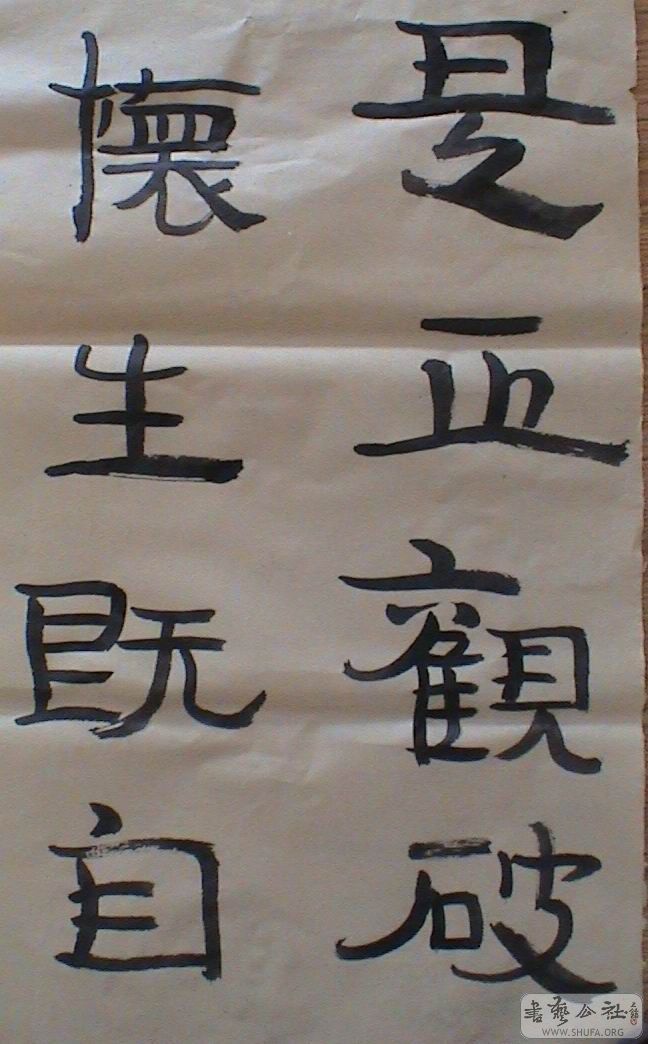 是正觀破
懷生既自
書藝公社
WWW.SHUFA.ORG